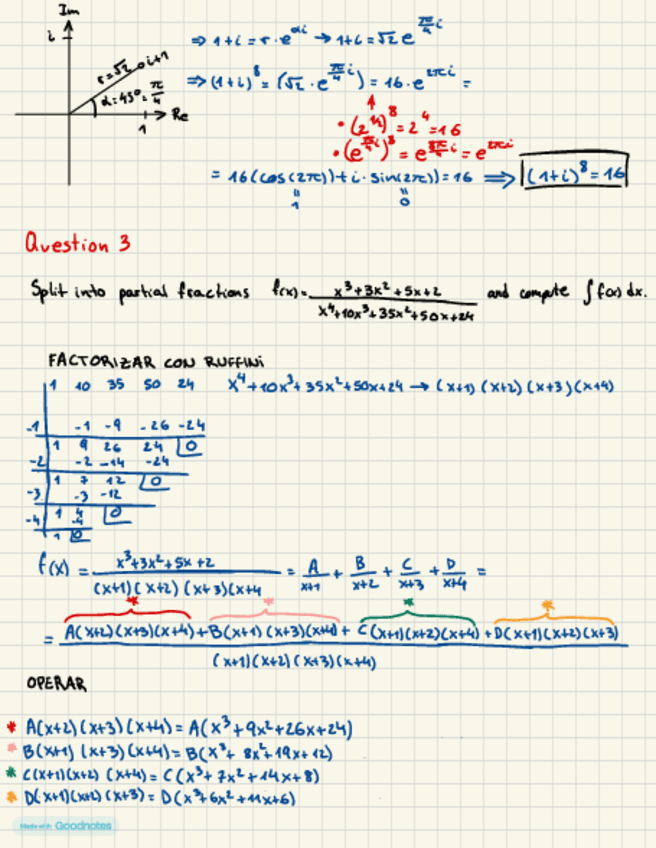 Im
i
r=√2
i+1
α=45º=π/4
Re
1
⇒ 1+i = r·e^{αi} → 1+i = √2 e^{π/4 i}
⇒ (1+i)^8 = (√2·e^{π/4 i}) = 16·e^{2πi} =
• (2^{1/2})^8 = 2^4 = 16
• (e^{π/4 i})^8 = e^{8π/4 i} = e^{2πi}
= 16(cos(2π))+i·sin(2π)) = 16 ⇒ (1+i)^8 = 16
" "
1 0
Question 3
Split into partial fractions f(x)= (x³+3x²+5x+2)/(x⁴+10x³+35x²+50x+24) and compute ∫f(x)dx.
FACTORIZAR CON RUFFINI
1 10 35 50 24 x⁴+10x³+35x²+50x+24 → (x+1)(x+2)(x+3)(x+4)
-1 -1 -9 -26 -24
1 9 26 24 0
-2 -2 -14 -24
1 7 12 0
-3 -3 -12
1 4 0
-4 -4
1 0
f(x) = (x³+3x²+5x+2)/((x+1)(x+2)(x+3)(x+4) = A/(x+1) + B/(x+2) + C/(x+3) + D/(x+4) =
* * * *
= A(x+2)(x+3)(x+4)+B(x+1)(x+3)(x+4)+C(x+1)(x+2)(x+4)+D(x+1)(x+2)(x+3)
(x+1)(x+2)(x+3)(x+4)
OPERAR
* A(x+2)(x+3)(x+4)=A(x³+9x²+26x+24)
* B(x+1)(x+3)(x+4)=B(x³+8x²+19x+12)
* C(x+1)(x+2)(x+4)=C(x³+7x²+14x+8)
* D(x+1)(x+2)(x+3)=D(x³+6x²+11x+6)
Made with Goodnotes